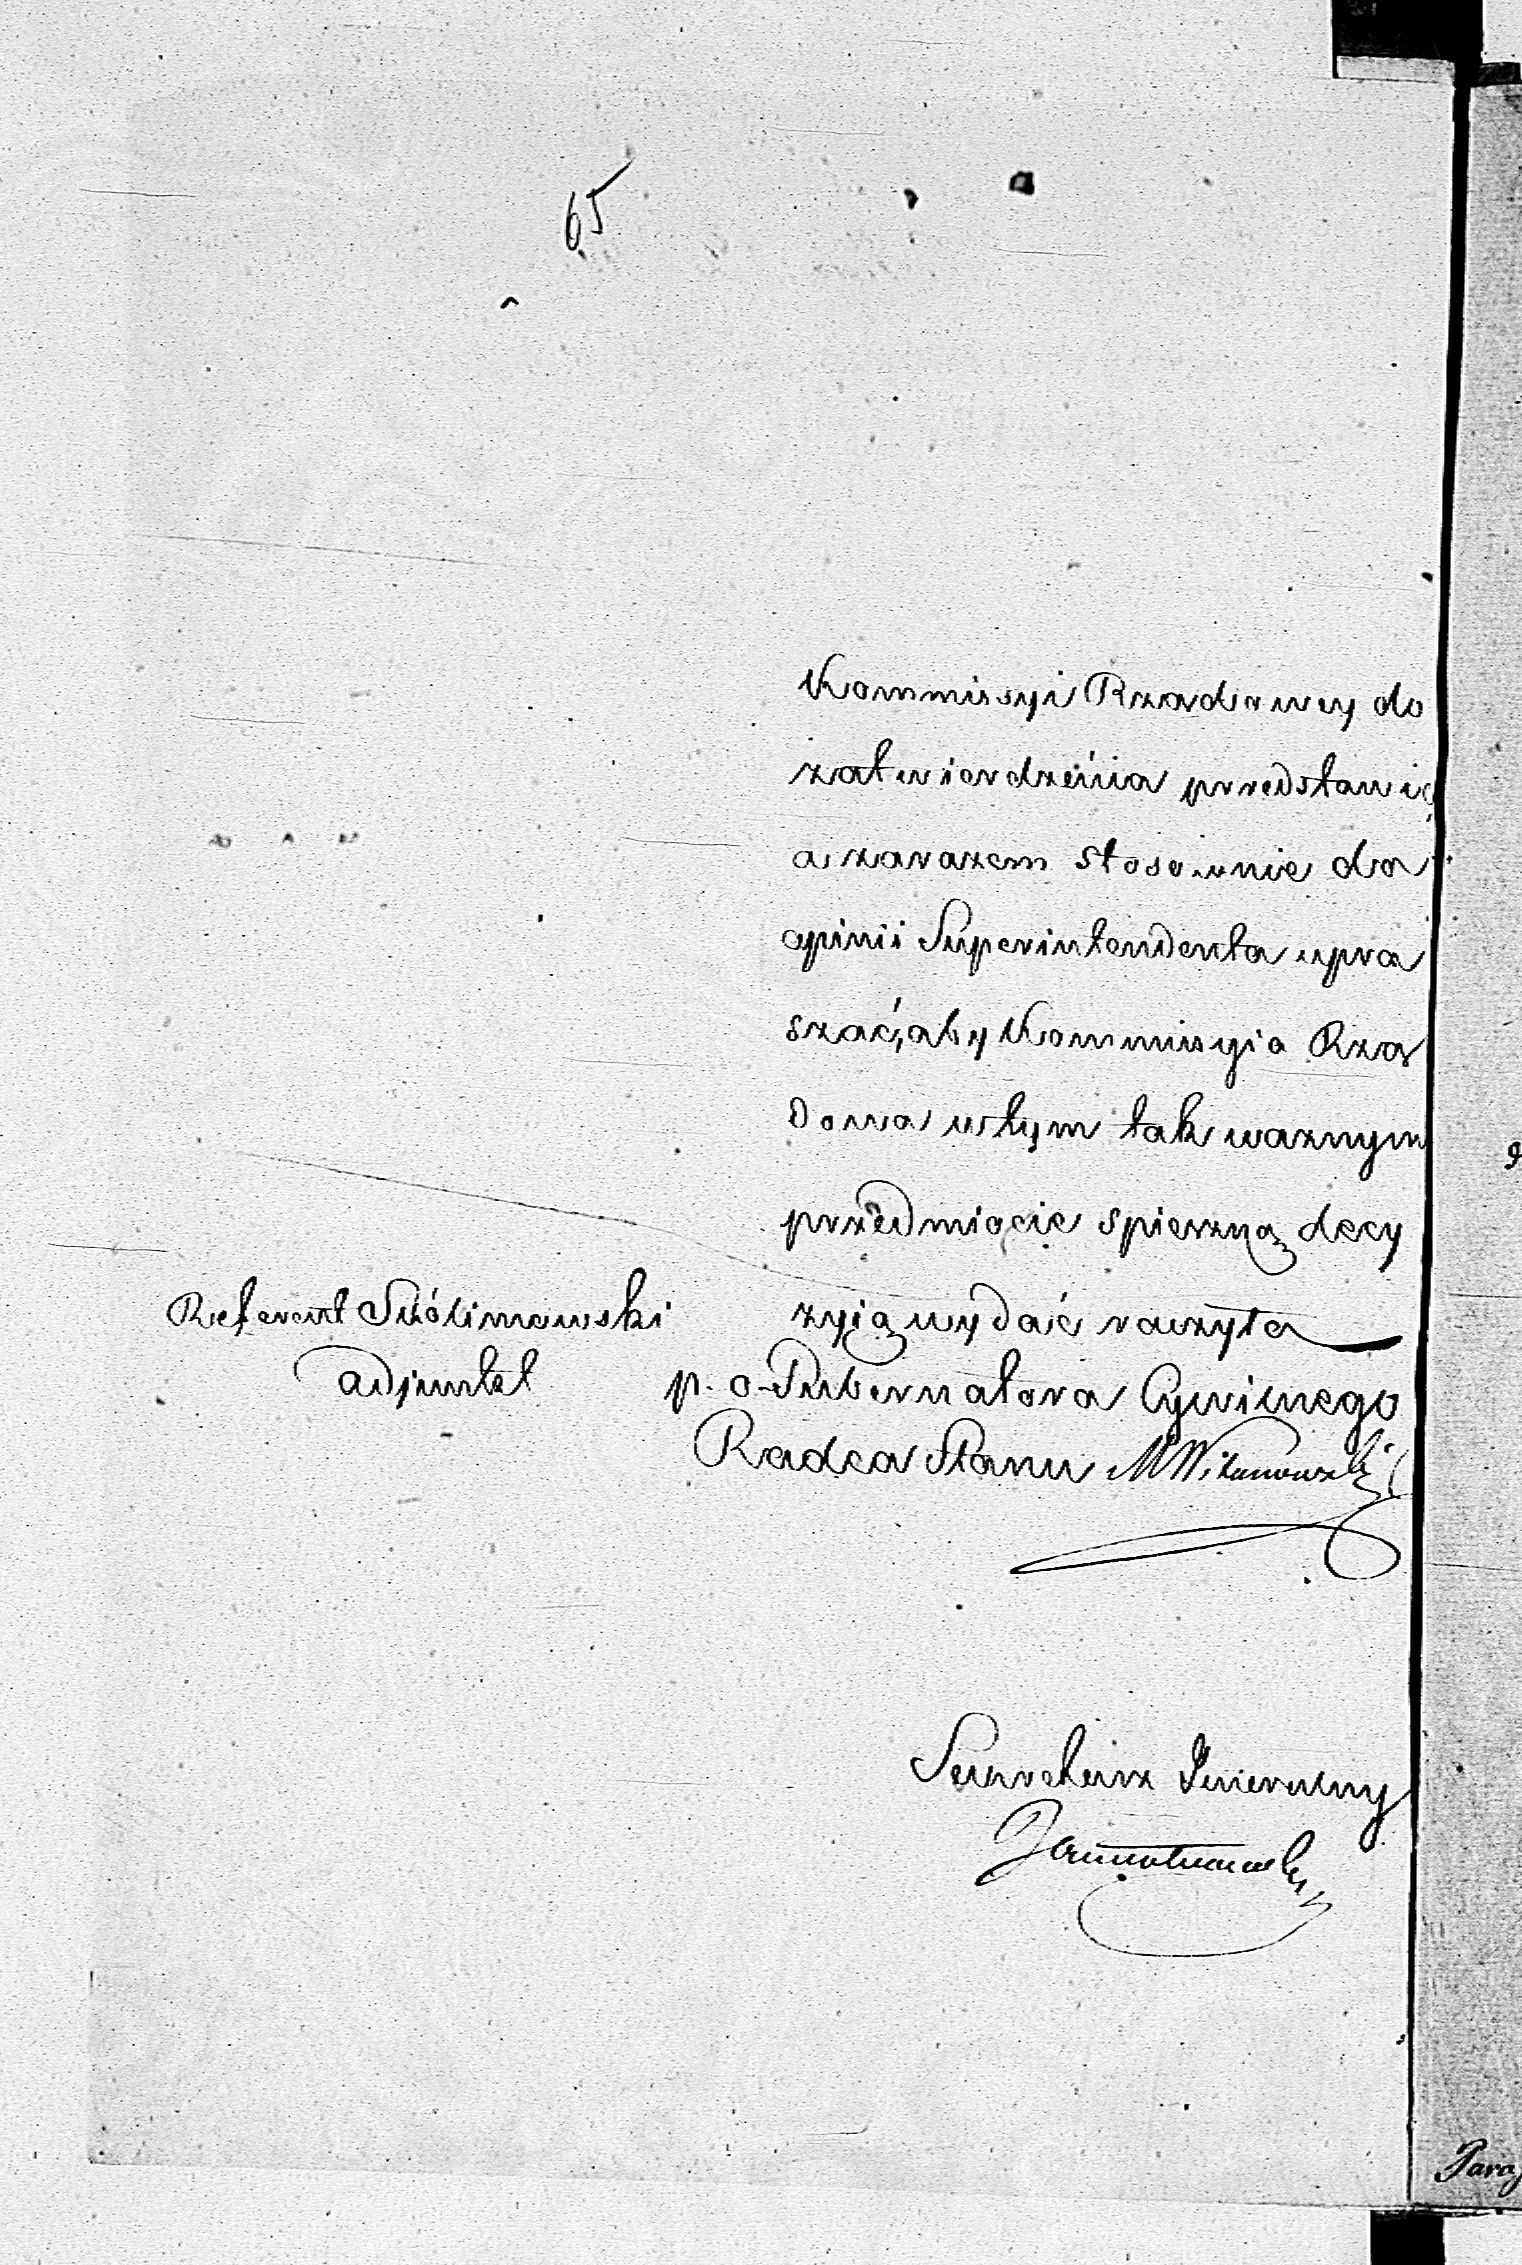 65
Kommissyi Rządowey do
zatwierdzenia przedstawić
a zarazem stosownie do
opinii Superintendenta upra
szać, aby Kommissyia Rzą
dowa w tym tak waznym
przedmiocie spieszną decy
zyią wydać raczyła
Referent
Adjunkt
p. o. Gubernatora Cywilnego
Radca Stanu
Sekretarz Jeneralny